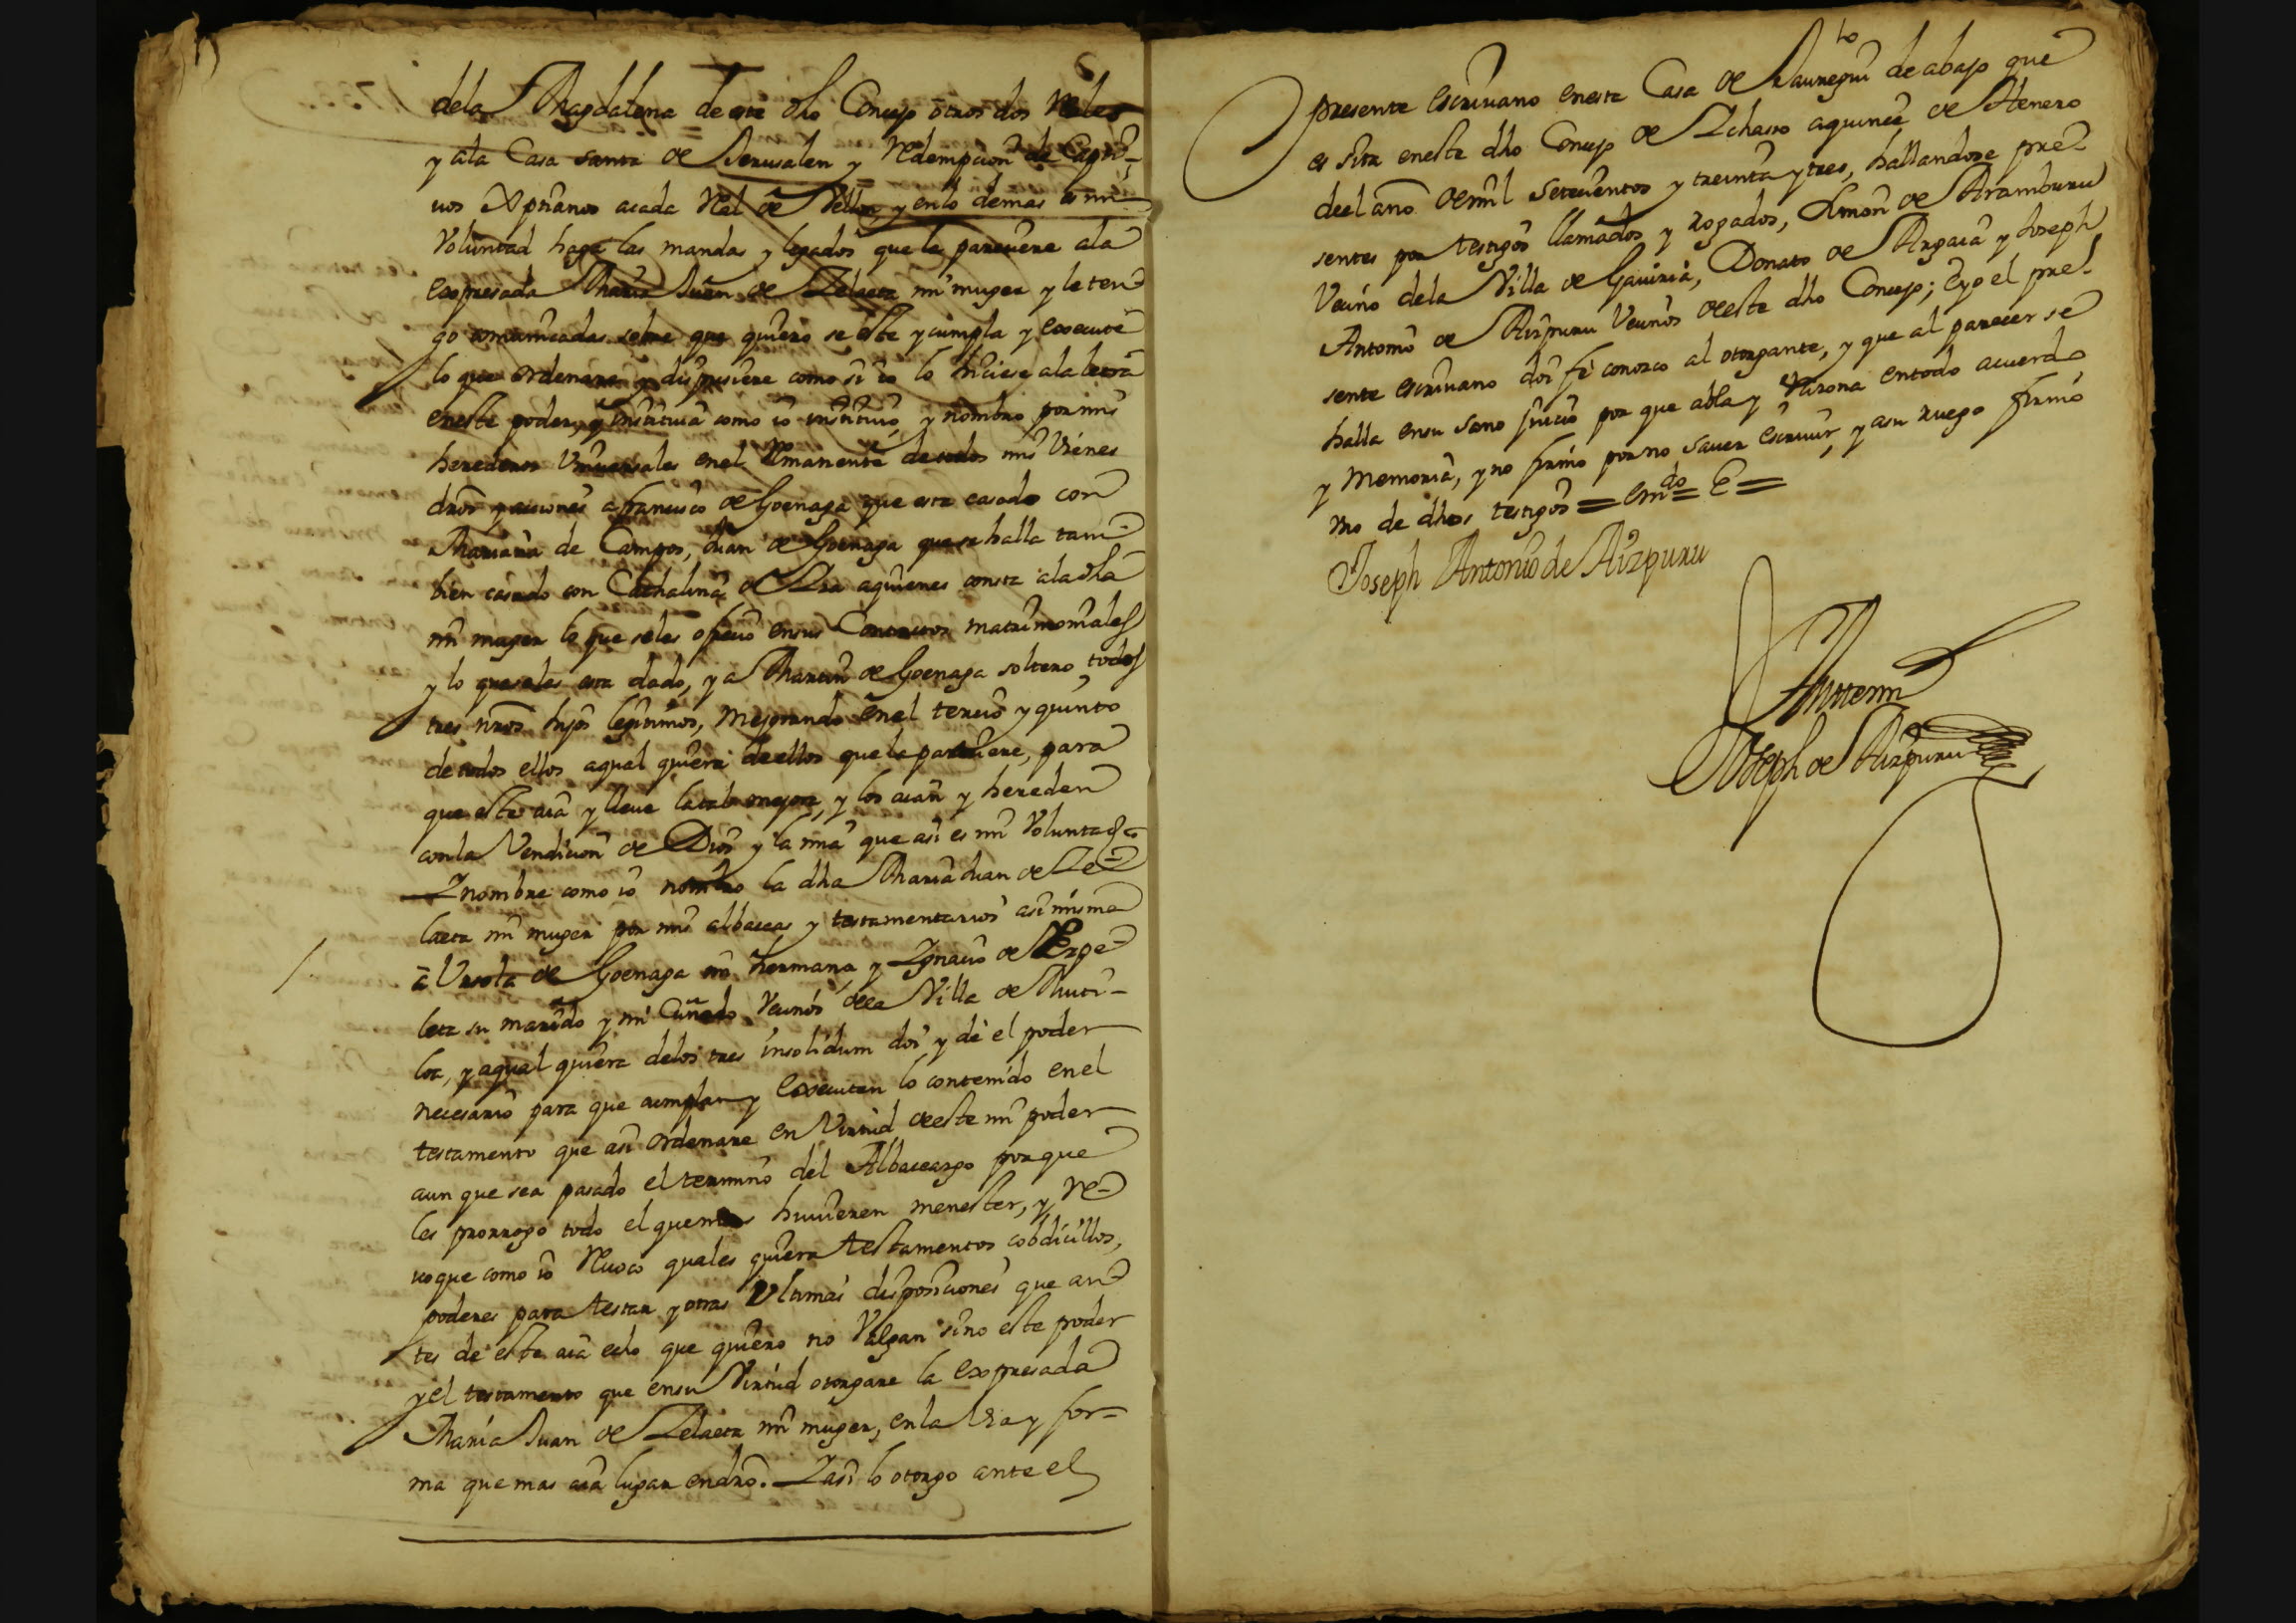 dela Magdalena de este dho Concejo otros dos Reales
y ala Casa santa de Jerusalen y Redempcion de Capti-
uos Xpñanos acada Real de Vellon y enlo demas es mi
Voluntad haga las mandas y legados que la pareciere ala
expresada Maria Juan de Zelaeta mi muger y le ten-
go comunicadas sobre que quiero se este y cumpla y execute
lo que ordenare y dispusiere como si io lo hiciese ala letra
eneste poder, y instituia como io instituio, y nombro por mis
herederos Vniuersales enel Remanente de todos mis Vienes
dros y acciones a francisco de Goenaga que esta casado con
Mariana de Campos, Juan de Goenaga que se halla tam-
bien casado con Cathalina de aquienes consta ala dha
mi muger lo que seles ofrecio ensus Contratos matrimoniales
y lo que seles esta dado, y a Martin de Goenaga soltero, todos
tres nros hijos legitimos, mejorando enel tercio y quinto
de todos ellos aqual quiera de ellos que la pareciere, para
que este aia y lleue la tal mejora, y los aian y hereden
conla Vendicion de Dios y la mia que asi es mi Voluntad
Y nombre como io nombro la dha Maria Juan de Ze-
laeta mi muger por mis albaceas y testamentarios asi misma
a Vrsola de Goenaga mi hermana, y Ygnacio de
leta su marido y mi Cuñado Vecinos dela Villa de Muti-
loa, y aqual quiera delos tres insolidum doi y de el poder
necesario para que cumplan y executen lo contenido enel
testamento que asi ordenare en Virtud de este mi poder
aun que sea pasado el termino del Albaceazgo por que
les prorrogo todo el que mas huuieren menester, y re-
uoque como io Reuoco quales quiera testamentos cobdicillos,
poderes para testar y otras Vltimas disposiciones que an-
tes de este aia echo que quiero no Valgan sino este poder
y el testamento que ensu Virtud otorgare la expresada
Maria Juan de Zelaeta mi muger, enla Via y for-
ma que mas aia lugar endro. Y asi lo otorgo ante el
presente escriuano enesta Casa de Jauregui de abajo que
es sita eneste dho Concejo de Ychaso aquince de Henero
de el año de mil setecientos y treinta y tres, hallandose pre-
sentes por testigos llamados y rogados, Simon de Aramburu
Vecino dela Villa de Gauiria, Donato de Argaia y Joseph
Antonio de Aizpuru Vecinos de este dho Concejo; e yo el pre-
sente escriuano doi fe conozco al otorgante, y que al parecer se
halla ensu sano juicio por que abla y Razona entodo acuerdo
y memoria, y no firmo por no sauer escriuir, y asu ruego firmo
vno de dhos testigos = emdo = E =
Joseph Antonio de Aizpuru
Antemi
Joseph de Aizpuru